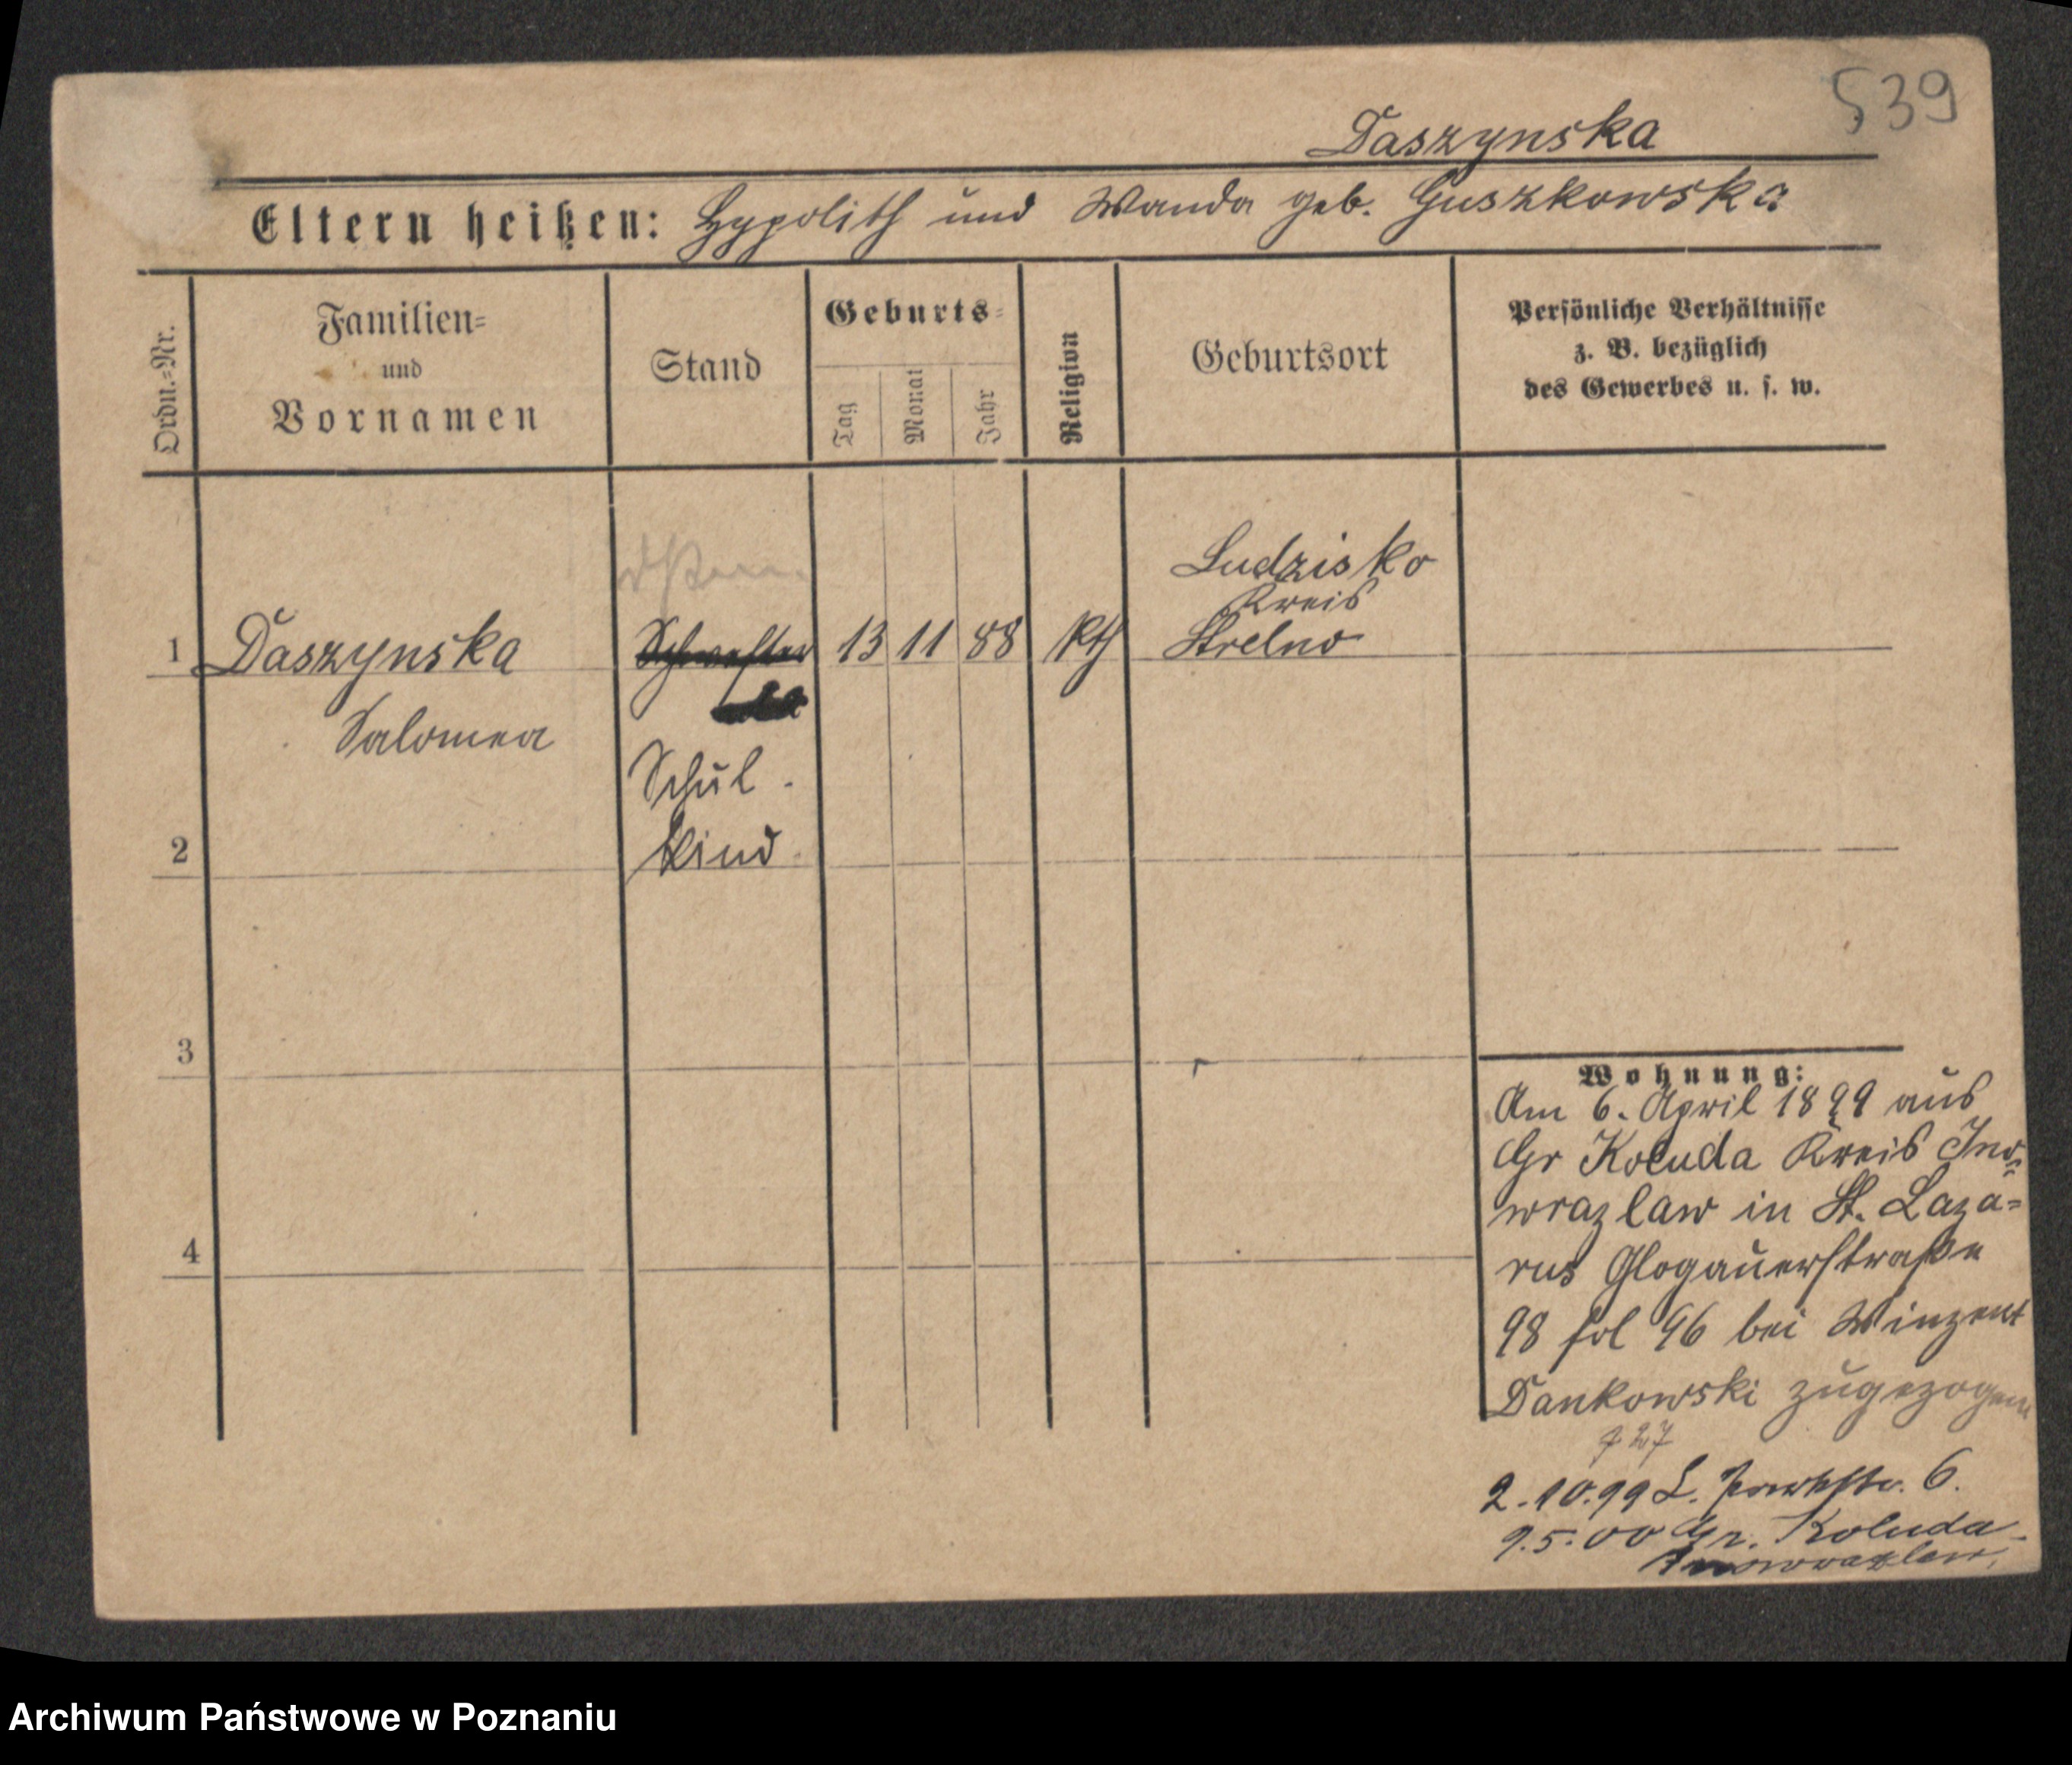 539
Daszynska
Eltern heißen: Hypolith und Wanda geb. Guszkowska
Ordn.-Nr.
Familien-
und
Vornamen
Stand
Geburts-
Tag
Monat
Jahr
Religion
Geburtsort
Persönliche Verhältnisse
z. B. bezüglich
des Gewerbes u. s. w.
Ludzisko
Kreis
1 Daszynska Schwester 13 11 88 kth Strelno
Salomea
Schul-
kind
2
3
4
Wohnung:
Am 6. April 1899 aus
Gr Koluda Kreis Ino=
wrazlaw in St. Laza=
rus Glogauerstraße
98 fol 96 bei Winzent
Dankowski zugezogen
2.10.99 L. Parkstr. 6.
9.5.00 Gr. Koluda
Inowrazlaw.
Archiwum Państwowe w Poznaniu